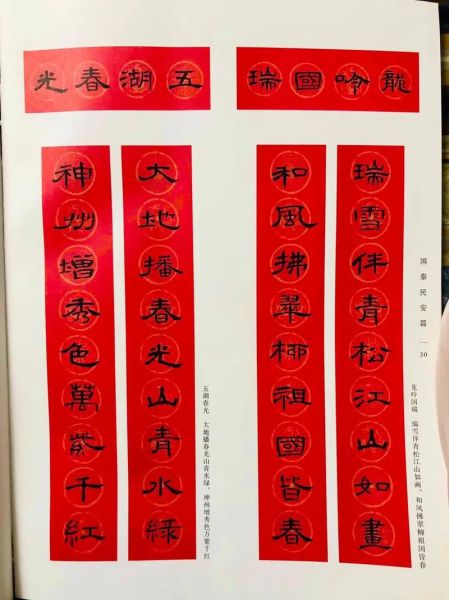 龍吟國瑞
瑞雪伴青松江山如畫
和風拂翠柳祖國皆春
龙吟国瑞 瑞雪伴青松江山如画，和风拂翠柳祖国皆春
五湖春光
大地播春光山青水緑
神州增秀色萬紫千紅
五湖春光 大地播春光山青水绿，神州增秀色万紫千红
国泰民安篇 — 30